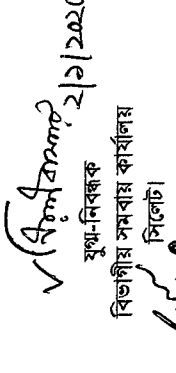 ২/১/২০২
যুগ্ম-নিবন্ধক
বিভাগীয় সমবায় কার্যালয়
সিলেট।